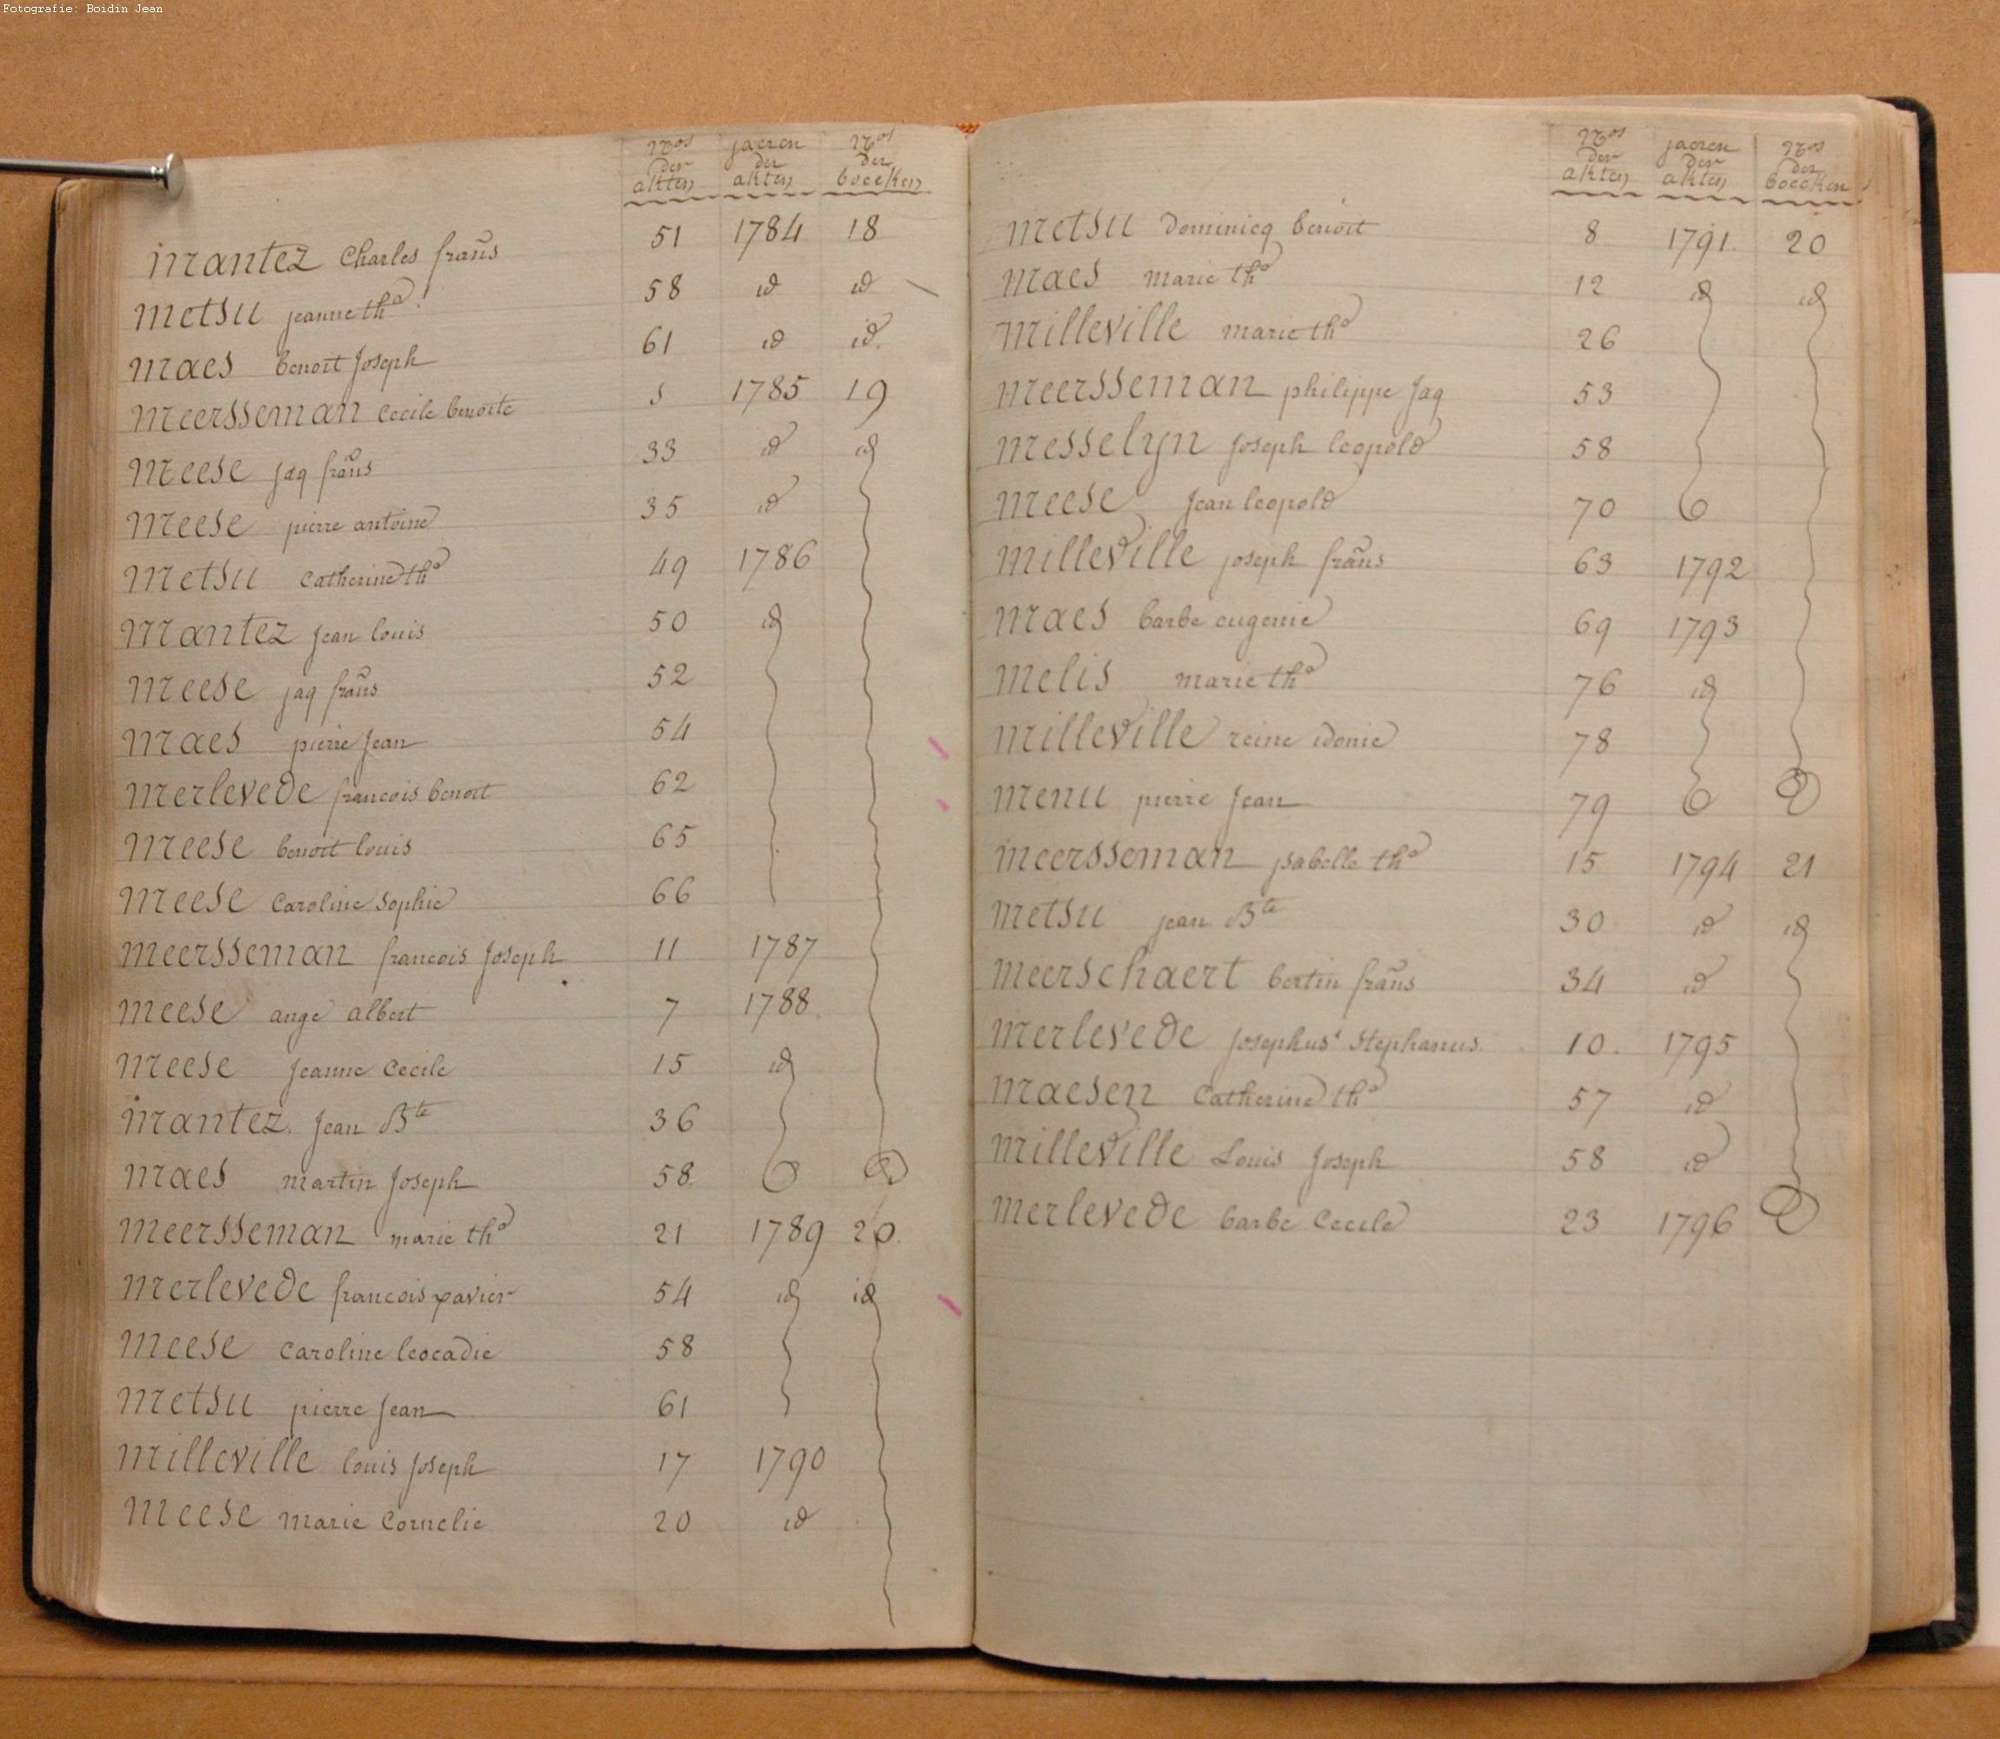 Fotografie: Boidin Jean
Nros der akten jaeren der akten Nros der boecken
Mantez Charles frans 51 1784 18
Metsu jeanne tha 58 id id
Maes benoit Joseph 61 id id
Meersseman Cecile benoite 5 1785 19
Meese jaq frans 33 id id
Meese pierre antoine 35 id
Metsu Catherine tha 49 1786
Mantez Jean louis 50 id
Meese jaq frans 52
Maes pierre Jean 54
Merlevede francois benoit 62
Meese benoit louis 65
Meese Caroline Sophie 66
Meersseman francois Joseph 11 1787
Meese ange albert 7 1788
Meese Jeanne Cecile 15 id
Mantez Jean Bte 36
Maes martin Joseph 58
Meersseman marie tha 21 1789 20
Merlevede francois xavier 54 id id
Meese Caroline leocadie 58
Metsu pierre Jean 61
Milleville louis Joseph 17 1790
Meese Marie Cornelie 20 id
Nros der akten jaeren der akten Nros der boecken
Metsu Dominicq benoit 8 1791 20
Maes Marie tha 12 id id
Milleville Marie tha 26
Meersseman philippe Jaq 53
Messelyn Joseph leopold 58
Meese Jean leopold 70
Milleville joseph frans 63 1792
Maes barbe eugenie 69 1793
Melis Marie tha 76 id
Milleville reine idonie 78
Menu pierre Jean 79
Meersseman isabelle tha 15 1794 21
Metsu jean Bte 30 id id
Meerschaert bertin frans 34 id
Merlevede Josephus Stephanus 10 1795
Maesen Catherine tha 57 id
Milleville Louis Joseph 58 id
Merlevede barbe Cecile 23 1796